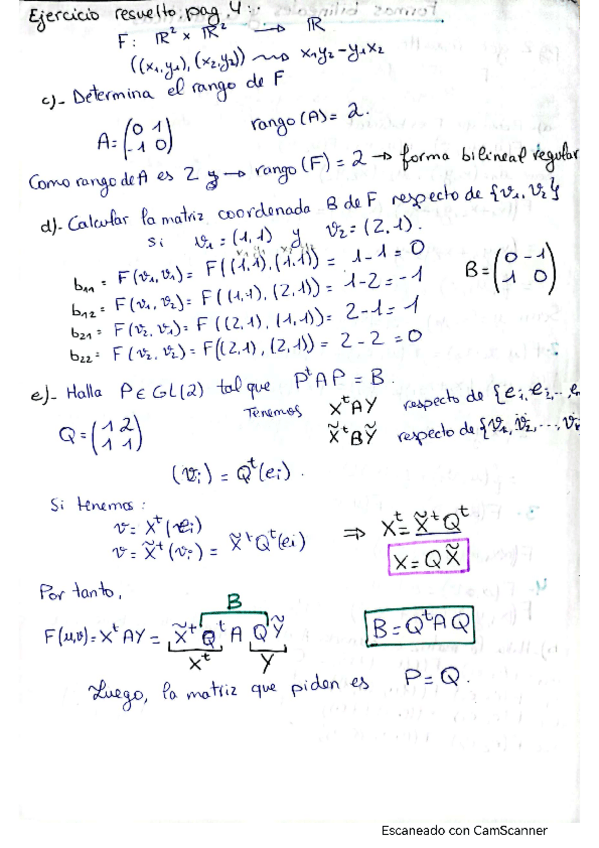 Ejercicio resuelto pag 4:
F: ℝ² × ℝ² → ℝ
((x₁,y₁), (x₂,y₂)) ⇝ x₁y₂ - y₁x₂
c)- Determina el rango de F
A = (0 1 / -1 0) rango (A) = 2.
Como rango de A es 2 y → rango (F) = 2 → forma bilineal regular
d)- Calcular la matriz coordenada B de F respecto de {v₁, v₂}
si v₁ = (1,1) y v₂ = (2,1).
b₁₁ = F(v₁,v₁) = F((1,1), (1,1)) = 1-1 = 0
b₁₂ = F(v₁,v₂) = F((1,1), (2,1)) = 1-2 = -1 B = (0 -1 / 1 0)
b₂₁ = F(v₂,v₁) = F((2,1), (1,1)) = 2-1 = 1
b₂₂ = F(v₂,v₂) = F((2,1), (2,1)) = 2-2 = 0
e)- Halla P ∈ GL(2) tal que PᵗAP = B.
Q = (1 2 / 1 1) Tenemos XᵗAY respecto de {e₁, e₂, ..., e
X̃ᵗBỸ respecto de {v₁, v₂, ..., v
(vᵢ) = Qᵗ(eᵢ).
Si tenemos:
v = Xᵗ(eᵢ)
v = X̃ᵗ(vᵢ) = X̃ᵗQᵗ(eᵢ) ⇒ Xᵗ = X̃ᵗQᵗ
X = QX̃
Por tanto,
B
F(u,v) = XᵗAY = X̃ᵗQᵗ A QỸ B = QᵗAQ
Xᵗ Y
Luego, la matriz que piden es P = Q.
Escaneado con CamScanner